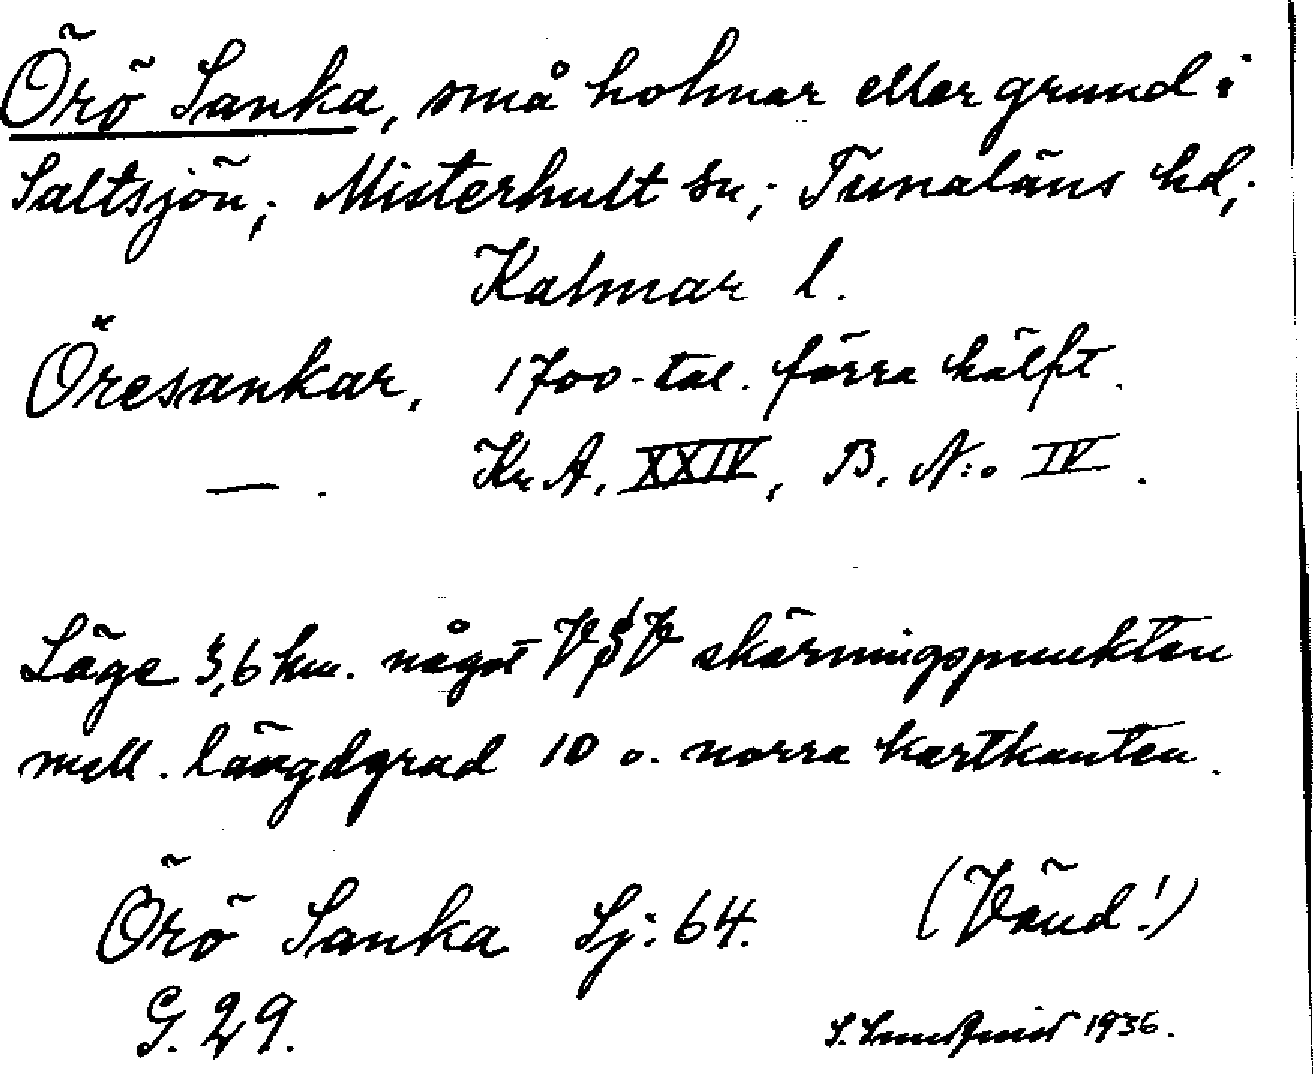 Örö Sanka, små holmar eller grund i
Saltsjön; Misterhult sn; Tunaläns hd;
Kalmar l.
Öresankar, 1700-tal. förra hälft.
— . Kr A. XXIV, B. N:o IV.
Läge 3,6 km. något V skärningspunkten
mell. längdgrad 10 o. norra kartkanten.
Örö Sanka Sj: 64. (Vänd!)
G. 29. S. Lundquist 1936.